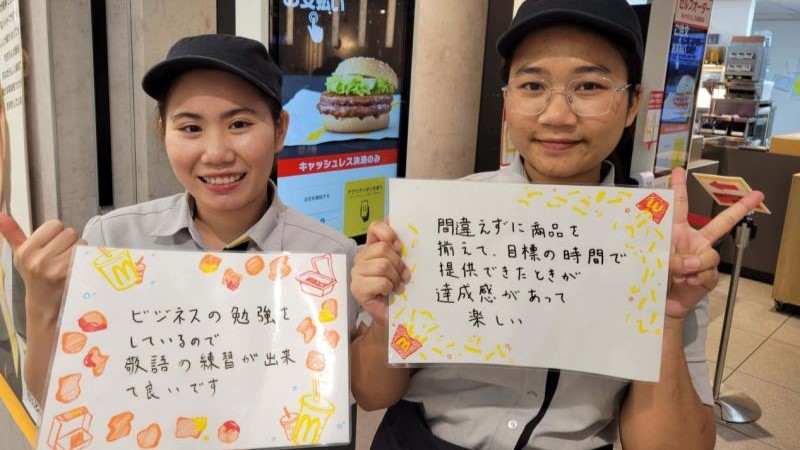 お支払い
キャッシュレス決済のみ
セルフオーダー
ビジネスの勉強を
しているので
敬語の練習が出来
て良いです
間違えずに商品を
揃えて、目標の時間で
提供できたときが
達成感があって
楽しい